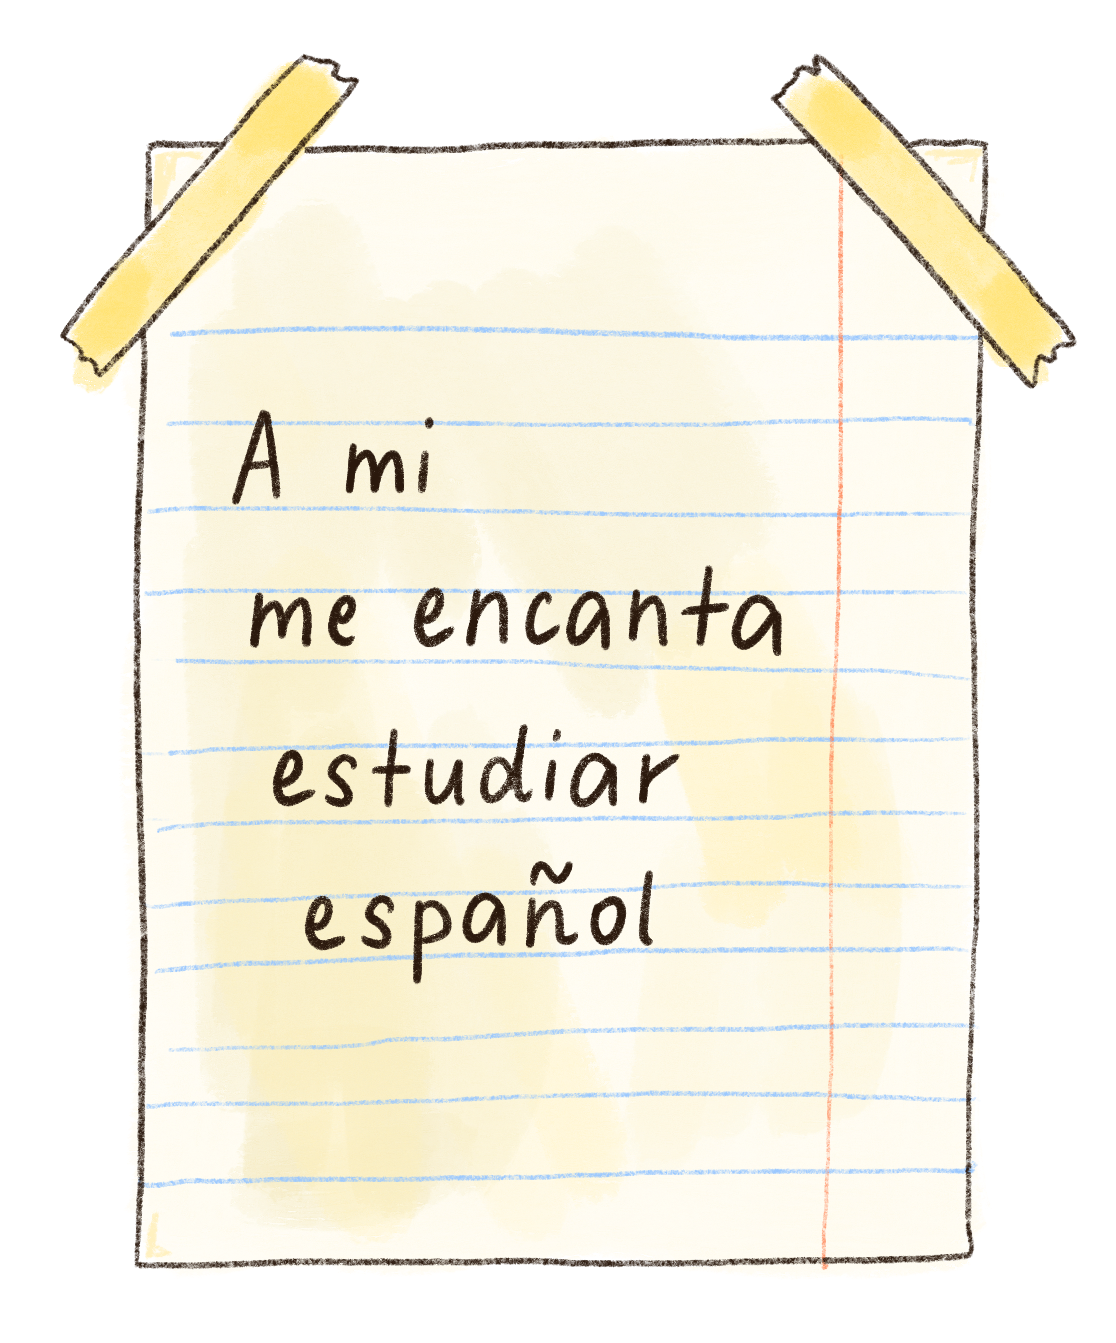 A mi
me encanta
estudiar
español